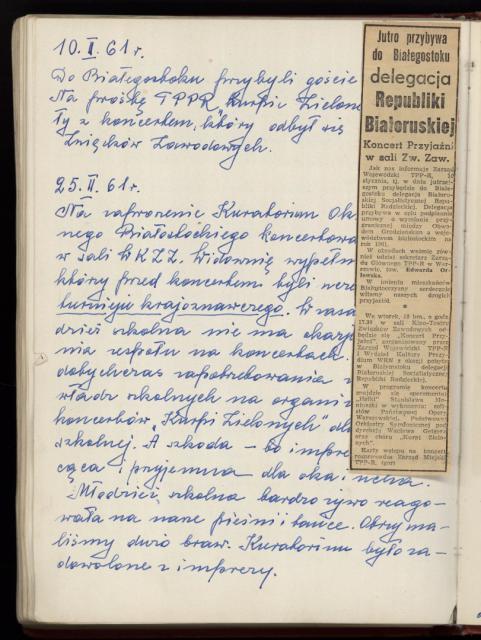 10.I.61r.
Do Białegostoku przybyli goście
Na prośbę TPPR „Kurpie Zielone
ły z koncertem, który odbył się
Związków Zawodowych.
25.II.61r.
Na zaproszenie Kuratorium Ok
nego Białostockiego koncertowa
w sali WKZZ. Widownię wypełni
który przed koncertem byli ucze
turnieju krajoznawczego.
dzież szkolna nie ma okazji
nia zespołu na koncertach.
dotychczas zapotrzebowania
władz szkolnych na organi
koncertów „Kurpi Zielonych" dla
szkolnej. A szkoda – bo impre
cąca i przyjemna dla oka i ucha.
Młodzież szkolna bardzo żywo reago-
wała na nasze pieśni i tańce. Otrzyma-
liśmy dużo braw. Kuratorium było za-
dowolone z imprezy.
Jutro przybywa
do Białegostoku
delegacja
Republiki
Białoruskiej
Koncert Przyjaźni
w sali Zw. Zaw.
Jak nas informuje Zarząd
Wojewódzki TPP-R, 10
stycznia, tj. w dniu jutrzej-
szym przybędzie do Białe-
gostoku delegacja Białorus-
kiej Socjalistycznej Repu-
bliki Radzieckiej. Delegacja
przybywa w celu podpisania
umowy o wymianie przy-
granicznej między Obwo-
dem Grodzieńskim a woje-
wództwem białostockim na
rok 1961.
W obradach weźmie rów-
nież udział sekretarz Zarzą-
du Głównego TPP-R w War-
szawie, tow. Edwarda Or-
łowska.
W imieniu mieszkańców
Białostocczyzny serdecznie
witamy naszych drogich
przyjaciół.
*
We wtorek, 10 bm., o godz.
17.30 w sali Kino-Teatru
Związków Zawodowych od-
będzie się „Koncert Przy-
jaźni", zorganizowany przez
Zarząd Wojewódzki TPP-R
i Wydział Kultury Prezy-
dium WRN z okazji pobytu
w Białymstoku delegacji
Białoruskiej Socjalistycznej
Republiki Radzieckiej.
W programie koncertu
znajdzie się operomontaż
„Halki" Stanisława Mo-
niuszki w wykonaniu: soli-
stów Państwowej Opery
Warszawskiej, Państwowej
Orkiestry Symfonicznej pod
dyrekcją Wacława Geigera
oraz chóru „Kurpi Zielo-
nych".
Karty wstępu na koncert
rozprowadza Zarząd Miejski
TPP-R.